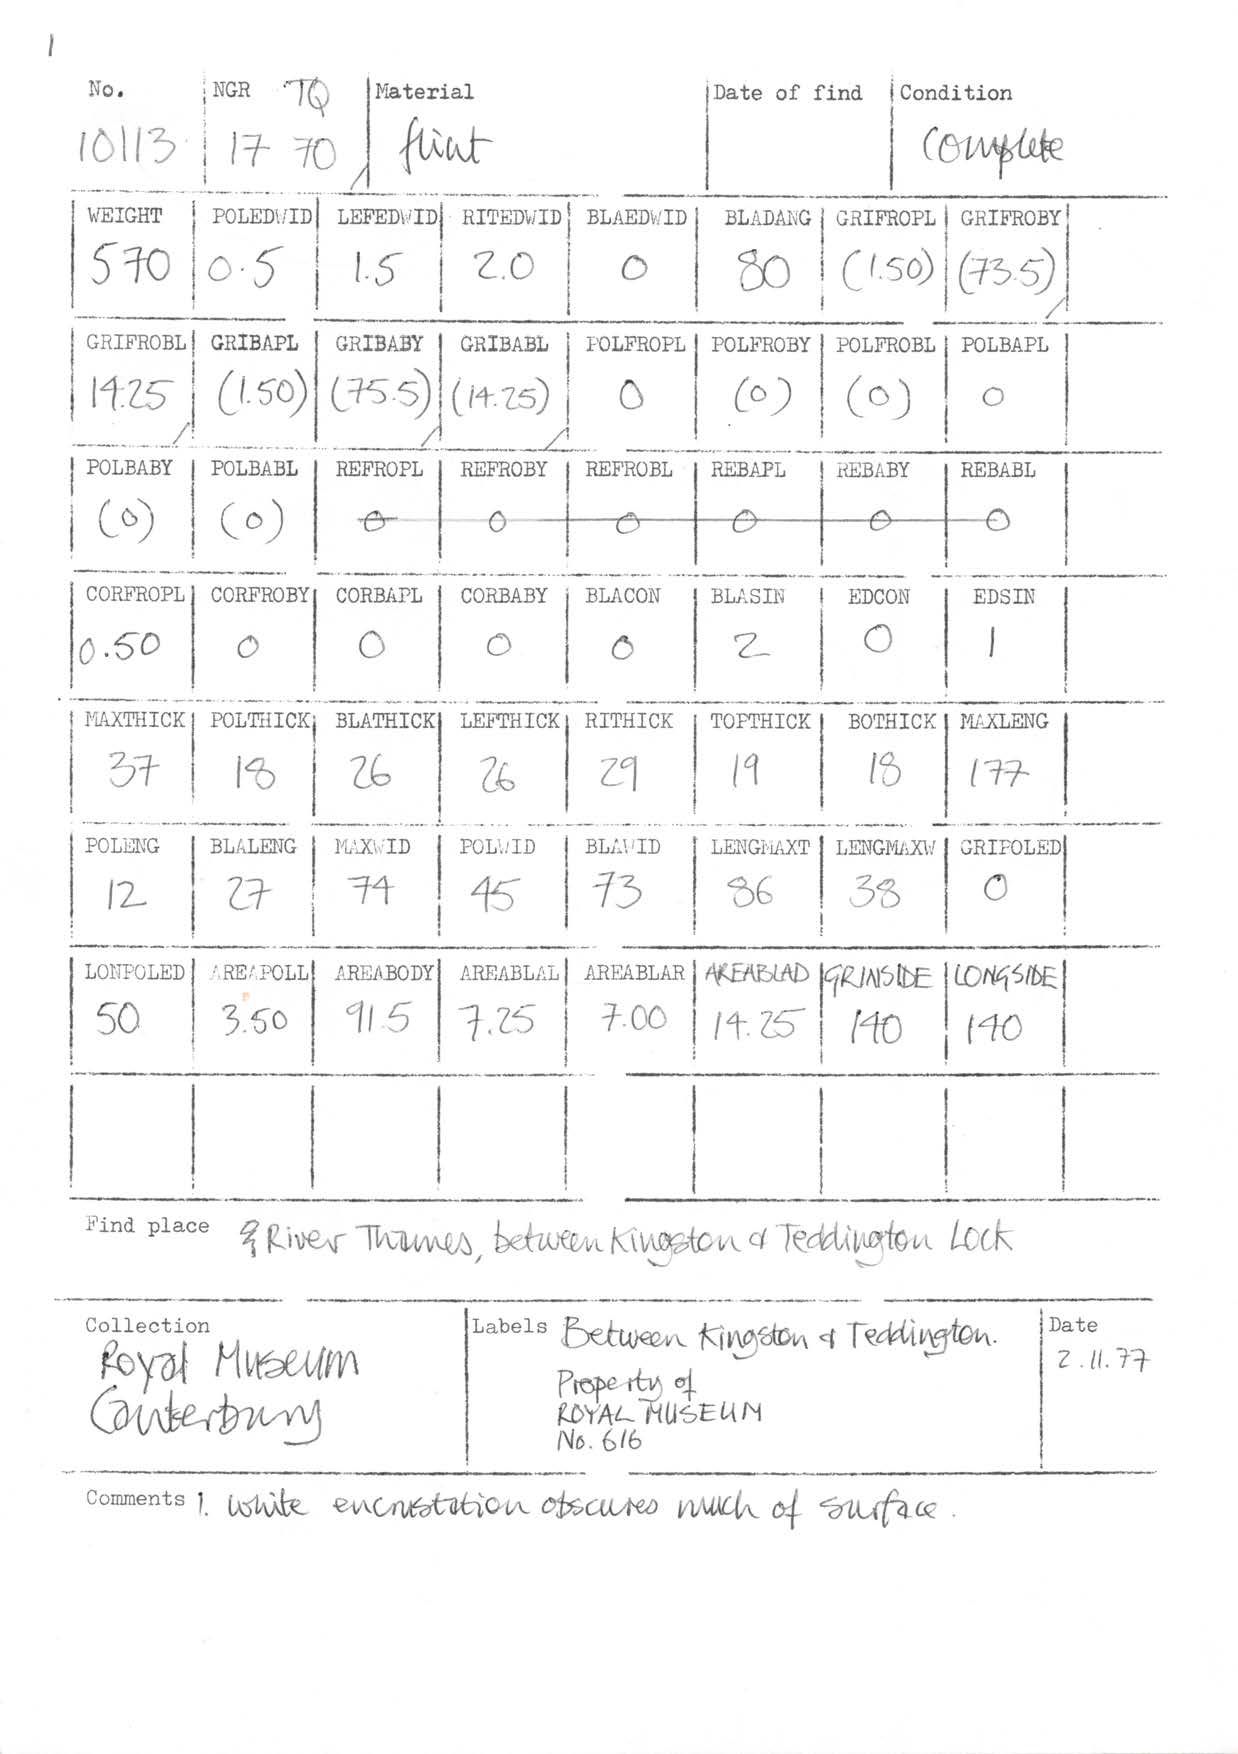 1
No. NGR TQ Material Date of find Condition
10113 17 70 flint complete
WEIGHT POLEDWID LEFEDWID RITEDWID BLAEDWID BLADANG GRIFROPL GRIFROBY
570 0.5 1.5 2.0 0 80 (1.50) (73.5)
GRIFROBL GRIBAPL GRIBABY GRIBABL POLFROPL POLFROBY POLFROBL POLBAPL
14.25 (1.50) (75.5) (14.25) 0 (0) (0) 0
POLBABY POLBABL REFROPL REFROBY REFROBL REBAPL REBABY REBABL
(0) (0) 0 0 0 0 0 0
CORFROPL CORFROBY CORBAPL CORBABY BLACON BLASIN EDCON EDSIN
0.50 0 0 0 0 2 0 1
MAXTHICK POLTHICK BLATHICK LEFTHICK RITHICK TOPTHICK BOTHICK MAXLENG
37 18 26 26 29 19 18 177
POLENG BLALENG MAXWID POLWID BLAWID LENGMAXT LENGMAXW GRIPOLED
12 27 74 45 73 86 38 0
LONPOLED AREAPOLL AREABODY AREABLAL AREABLAR AREABLAD GRINSIDE LONGSIDE
50 3.50 91.5 7.25 7.00 14.25 140 140
Find place River Thames, between Kingston & Teddington Lock
Collection Labels Between Kingston & Teddington. Date
Royal Museum 2.11.77
Canterbury Property of
ROYAL MUSEUM
No. 616
Comments 1. White encrustation obscures much of surface.